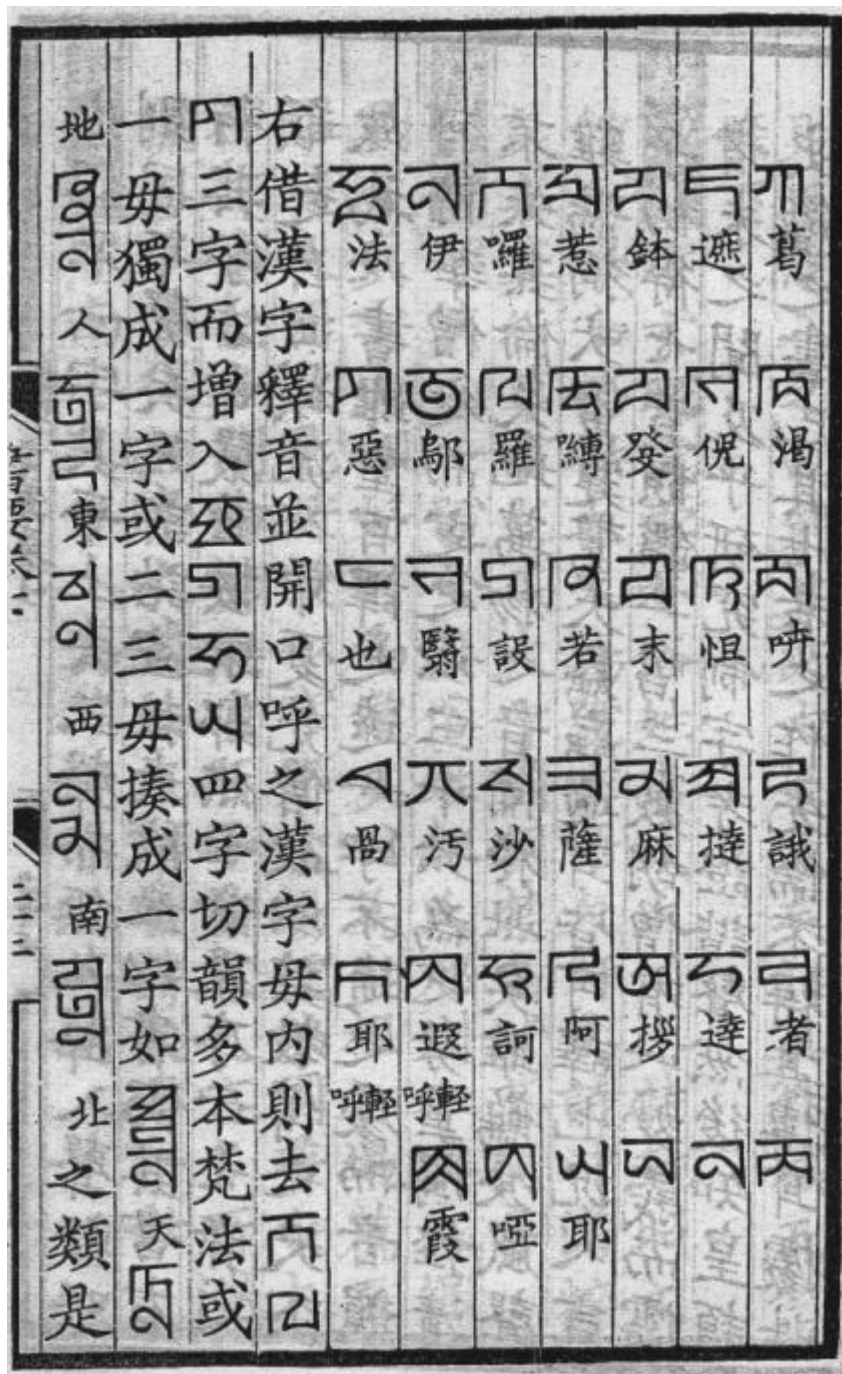 ꡀ葛 ꡁ渴 ꡂ ꡃ誐 ꡄ者 ꡅ
ꡆ遮 ꡇ倪 ꡈ怛 ꡉ撻 ꡊ達 ꡋ
ꡌ鉢 ꡍ發 ꡎ末 ꡏ麻 ꡐ拶 ꡑ
ꡒ惹 ꡓ嚩 ꡔ若 ꡕ薩 ꡖ阿 ꡗ耶
ꡘ囉 ꡙ羅 ꡚ設 ꡛ沙 ꡜ訶 ꡝ啞
ꡞ伊 ꡟ鄔 ꡠ翳 ꡡ汚 ꡢ遐輕呼 ꡣ霞
ꡤ法 ꡥ惡 ꡦ也 ꡧ咼 ꡨ耶輕呼
右借漢字釋音並開口呼之漢字母內則去ꡘꡙ
ꡥ三字而增入ꡚꡜꡗ四字切韻多本梵法或
一母獨成一字或二三母揍成一字如天
地人東西南北之類是